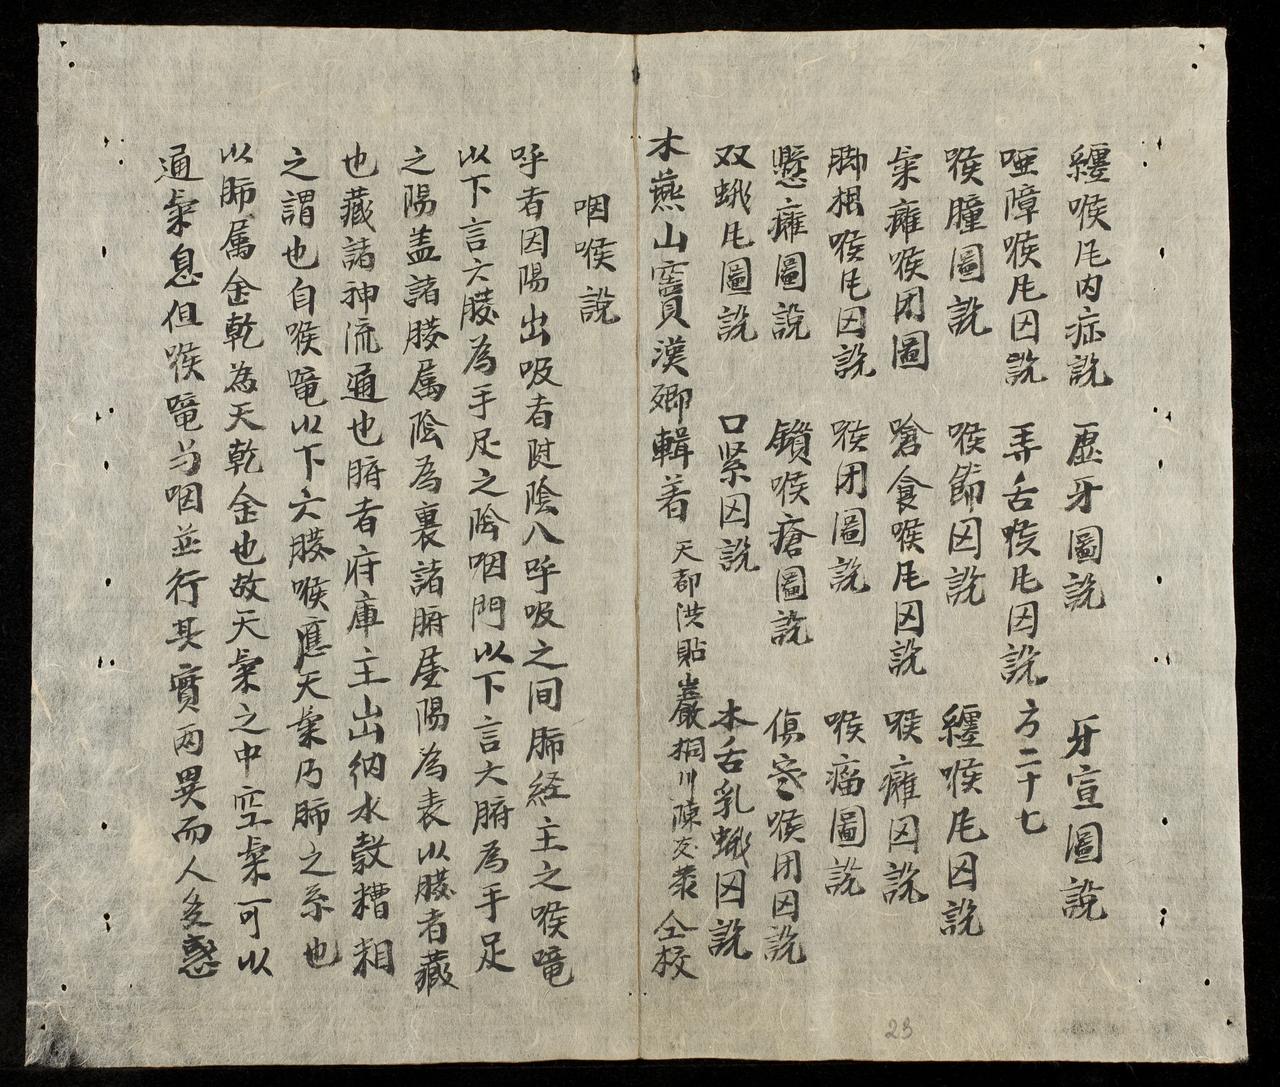 纏喉𠃵内症說 虚牙圖說 牙宣圖說
哑障喉𠃵因說 弄舌喉𠃵因說 方二十七
喉腫圖說 喉節因說 纏喉𠃵因說
氣癰喉闭圖 嗆食喉𠃵因說 喉癰因說
脚根喉𠃵因說 喉闭圖說 喉瘤圖說
懸癰圖說 鎖喉瘡圖說 傷寒喉闭因說
双蛾𠃵圖說 口紧因說 木舌乳蛾因說
木燕山竇漢卿輯着 天都洪貼巖桐川陳友恭仝校
咽喉說
呼者因陽出吸者随陰八呼吸之间肺経主之喉嚨
以下言六臓為手足之陰咽門以下言大腑為手足
之陽盖諸臓属陰為裏諸腑属陽為表以臓者藏
也藏諸神流通也腑者府庫主出納水穀糟粕
之謂也自喉嚨以下六臓喉應天氣乃肺之系也
以肺属金乾為天乾金也故天氣之中空氣可以
通氣息但喉嚨与咽並行其實两異而人多惑
23